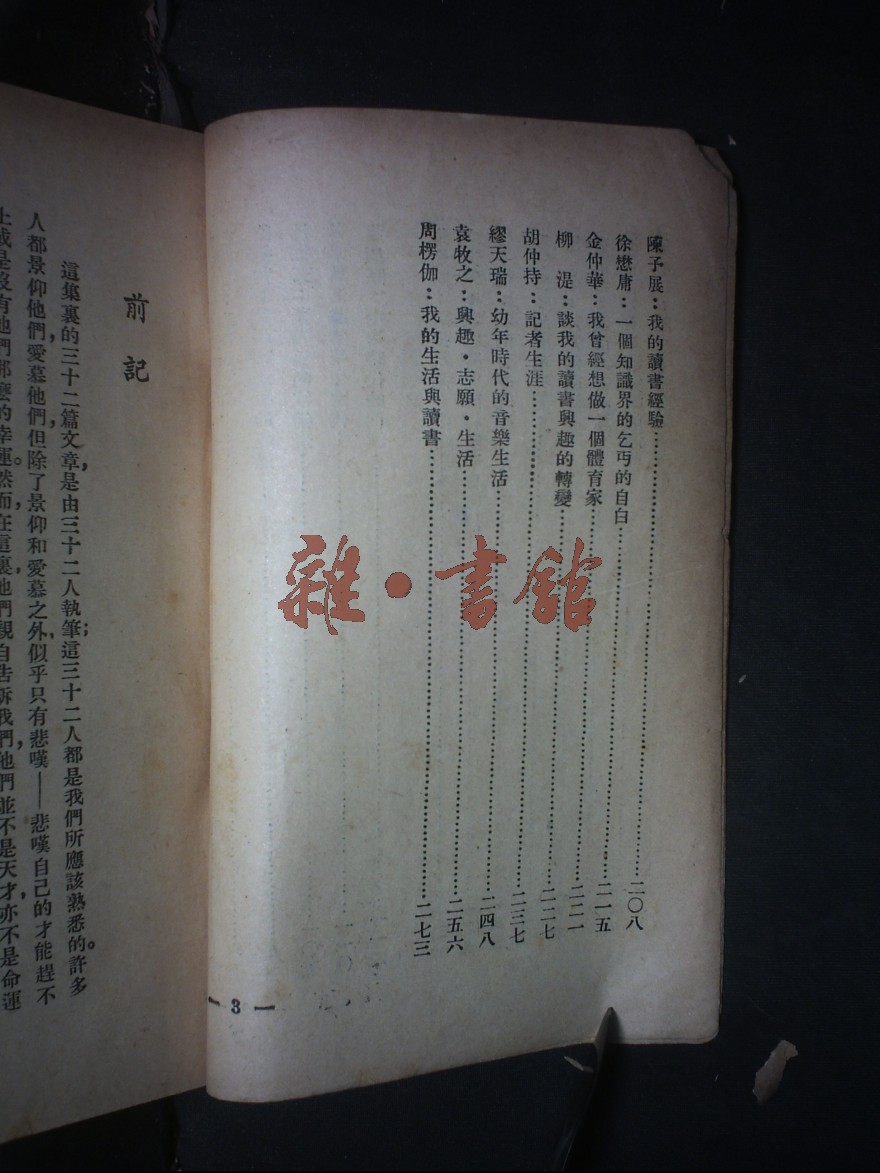 陳子展：我的讀書經驗………二〇八
徐懋庸：一個知識界的乞丐的自白………二一五
金仲華：我曾經想做一個體育家………二二一
柳　湜：談我的讀書興趣的轉變………二二七
胡仲持：記者生涯………二三七
繆天瑞：幼年時代的音樂生活………二四八
袁牧之：興趣・志願・生活………二五六
周楞伽：我的生活與讀書………二七三
— 3 —
雜・書館
前記
這集裏的三十二篇文章，是由三十二人執筆；這三十二人都是我們所應該熟悉的。許多
人都景仰他們，愛慕他們，但除了景仰和愛慕之外，似乎只有悲嘆——悲嘆自己的才能趕不
上或是沒有他們那麼的幸運。然而在這裏，他們親自告訴我們，他們並不是天才，亦不是命運